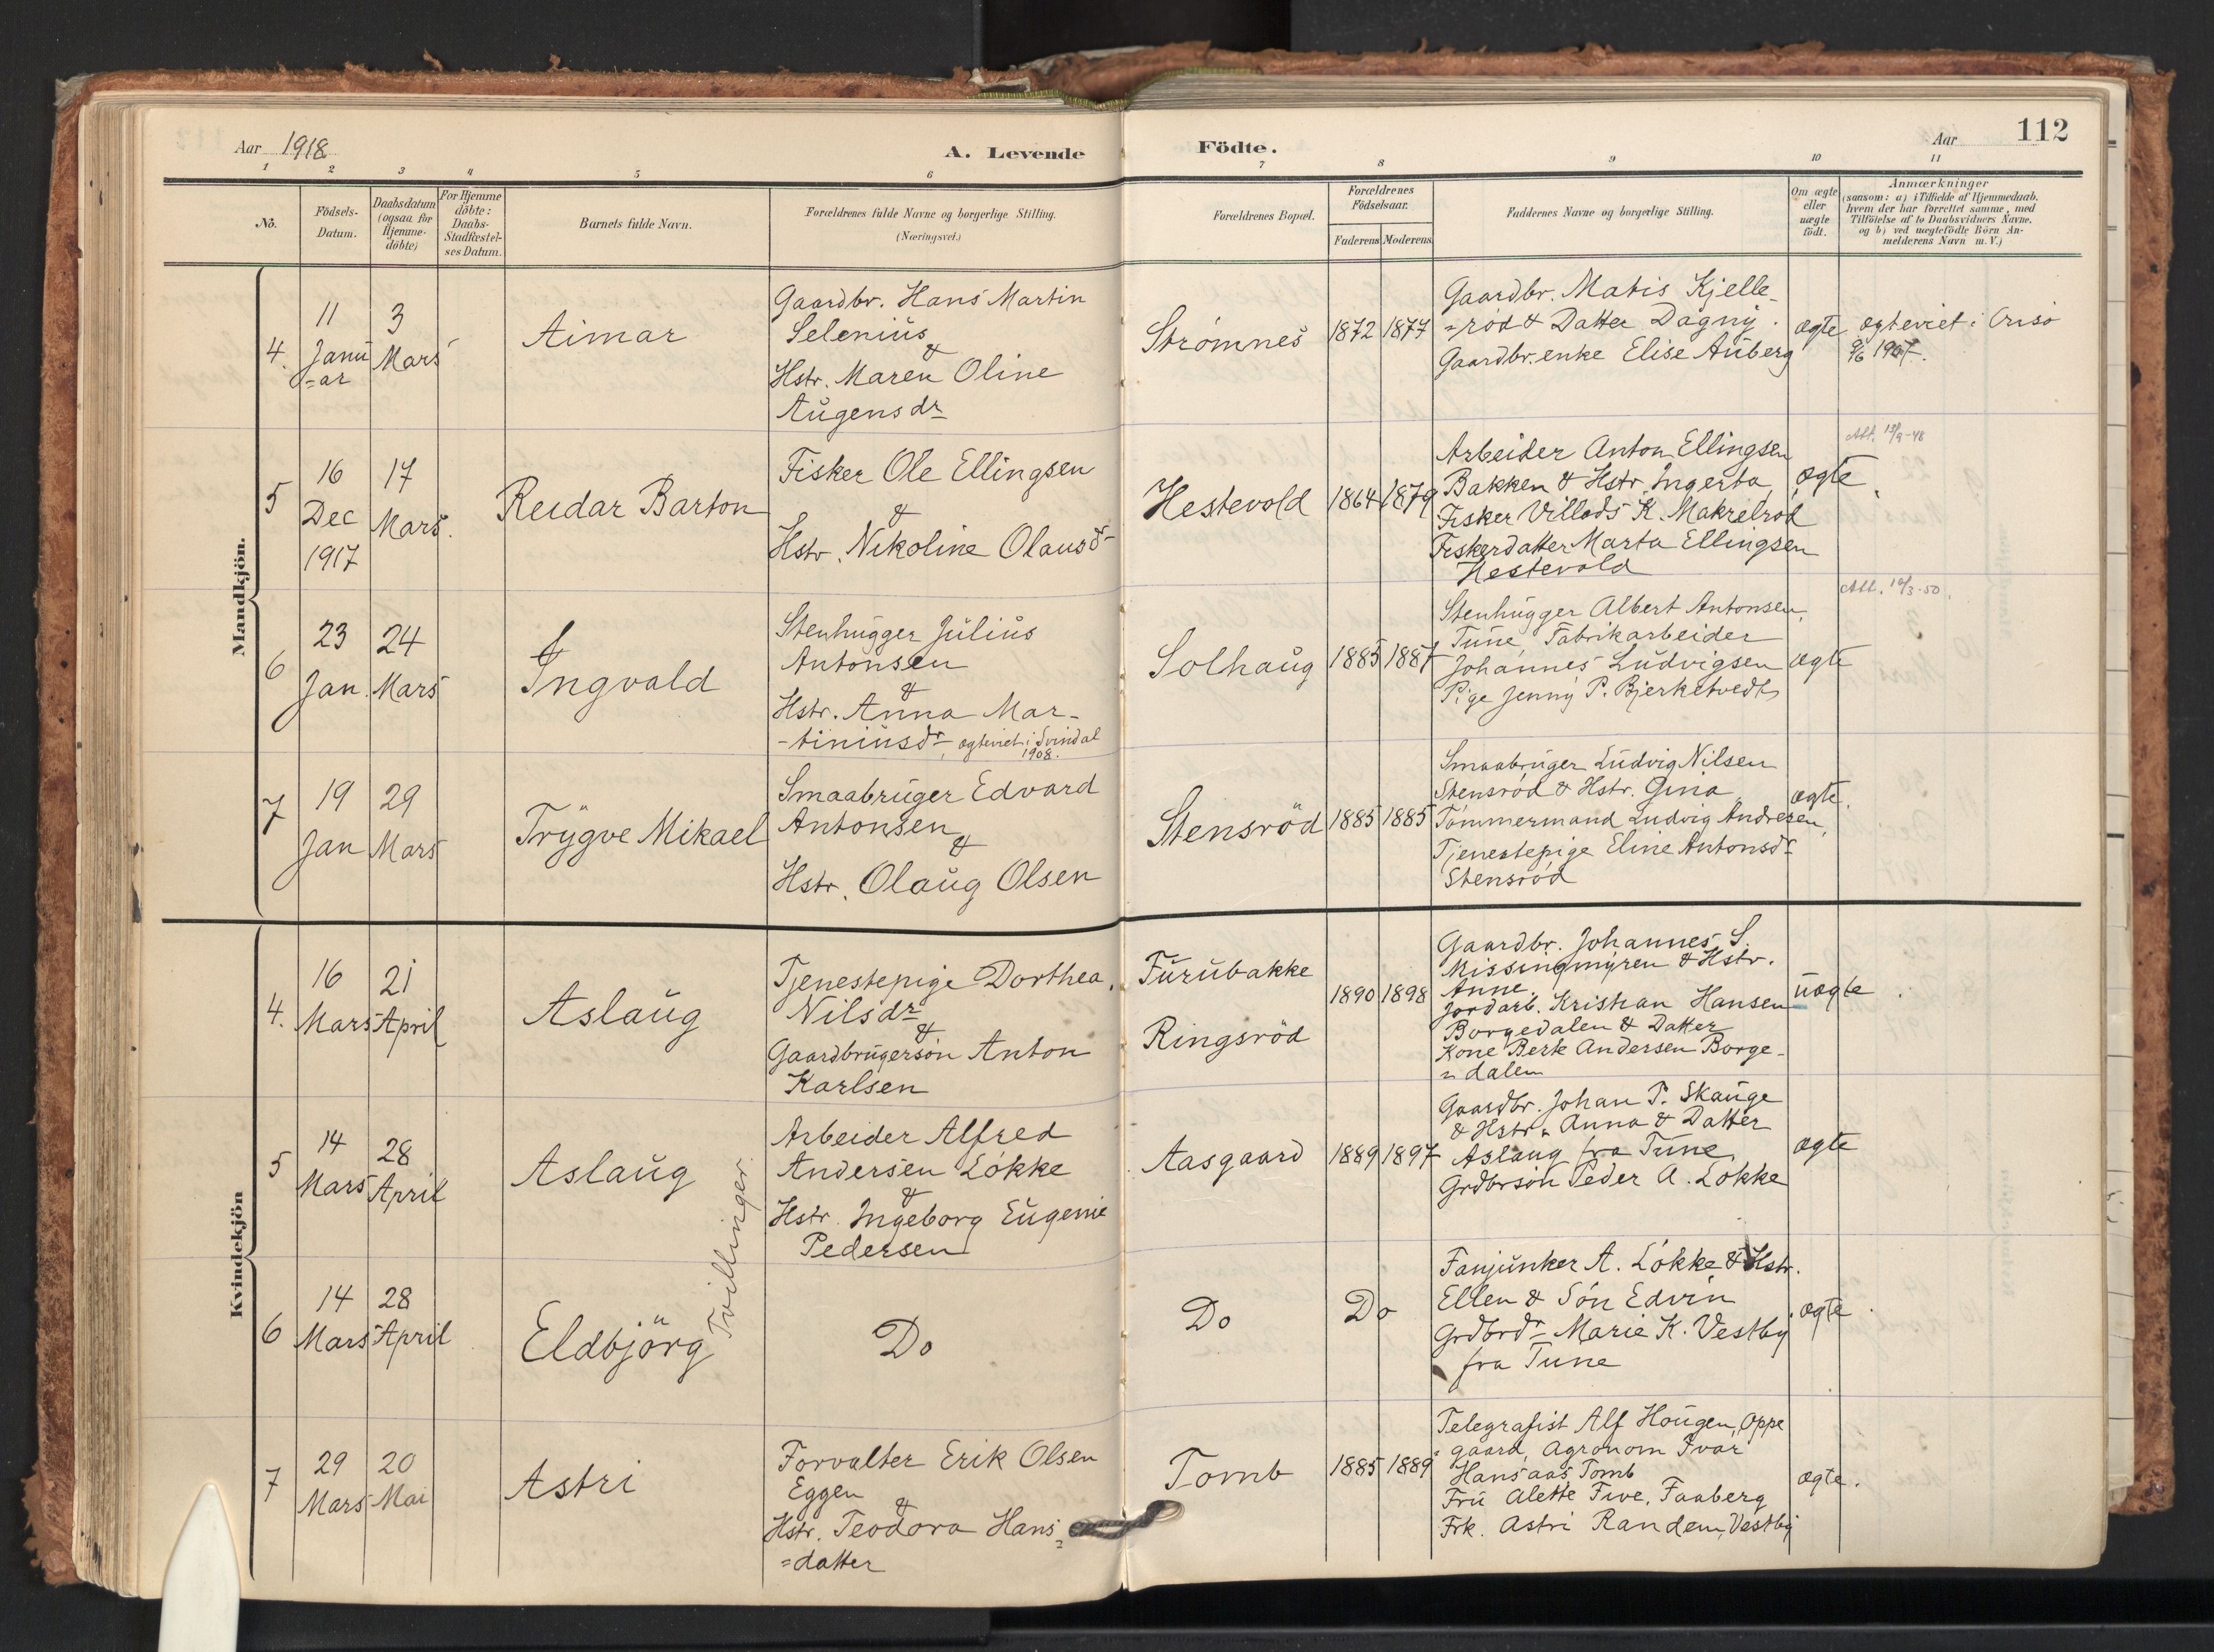 Aar 1918
A. Levende
Födte.
Aar
112
1 2 3 4 5 6 7 8 9 10 11
No.
Födsels-
Datum.
Daabsdatum
(ogsaa for
Hjemme-
döbte)
For Hjemme
döbte:
Daabs-
Stadfæstel-
ses Datum.
Barnets fulde Navn.
Forældrenes fulde Navne og borgerlige Stilling.
(Næringsvei.)
Forældrenes Bopæl.
Forældrenes
Födselsaar.
Faderens Moderens
Faddernes Navne og borgerlige Stilling.
Om ægte
eller
uægte
födt.
Anmærkninger
(saasom: a) i Tilfælde af Hjemmedaab.
hvem der har forrettet samme, med
Tilföielse af to Daabsvidners Navne,
og b) ved uægtefödte Börn An-
melderens Navn m. V.)
Mandkjön.
4.
11
Janu
=ar
3
Mars
Aimar
Gaardbr. Hans Martin
Selenius
&
Hstr. Maren Oline
Augensdr
Strømnes
1872 1877
Gaardbr. Matis Kjelle-
=rød & Datter Dagny.
Gaardbr.enke Elise Auberg
ægte
ægteviet i Onsö
1907.
5
16
Dec
1917
17
Mars.
Reidar Barton
Fisker Ole Ellingsen
&
Hstr. Nikoline Olausd
Hestevold
1864 1879
Arbeider Anton Ellingsen
Bakken & Hstr. Ingerta
Fisker Villads K. Makrelröd
Fiskerdatter Marta Ellingsen
Hestevold
ægte
Att. 12/9-48
6
23
Jan.
24
Mars
Ingvald
Stenhugger Julius
Antonsen
&
Hstr. Anna Mar-
-tiniusdr, ægteviet i Svindal
1908.
Solhaug
1885 1887
Stenhugger Albert Antonsen,
Tune, Fabrikarbeider
Johannes Ludvigsen
Pige Jenny P. Bjerketvedt
ægte
Att. 10/3-50.
7
19
Jan
29
Mars
Trygve Mikael
Smaabruger Edvard
Antonsen
&
Hstr. Olaug Olsen
Stensröd
1885 1885
Smaabruger Ludvig Nilsen
Stensröd & Hstr. Gina
Tömmermand Ludvig Andresen,
Tjenestepige Eline Antonsdr
Stensröd
ægte.
Kvindekjön
4.
16
Mars
21
April
Aslaug
Tjenestepige Dorthea
Nilsdr
&
Gaardbrugersön Anton
Karlsen
Furubakke
Ringsröd
1890 1898
Gaardbr. Johannes S.
Missingmyren & Hstr.
Anne.
Jordarb. Kristian Hansen
Borgedalen & Datter
Kone Berte Andersen Borge-
=dalen
uægte
5
14
Mars
28
April
Aslaug
Tvillinger.
Arbeider Alfred
Andersen Lökke
&
Hstr. Ingeborg Eugenie
Pedersen
Aasgaard
1889 1897
Gaardbr. Johan P. Skauge
& Hstr. Anna & Datter
Aslaug fra Tune,
Grdbrsön Peder A. Lökke
ægte
6
14
Mars
28
April
Eldbjörg
Do
Do
Do
Fanjunker A. Lökke & Hstr.
Ellen & Sön Edvin
Grdbrdr Marie K. Vestby
fra Tune
ægte
7
29
Mars
20
Mai
Astri
Forvalter Erik Olsen
Eggen
&
Hstr. Teodora Hans=
=datter
Tomb
1885 1889
Telegrafist Alf Hougen, Oppe
=gaard, Agronom Ivar
Hansaas, Tomb
Fru Alette Five, Faaberg
Frk. Astri Randem, Vestby
ægte.